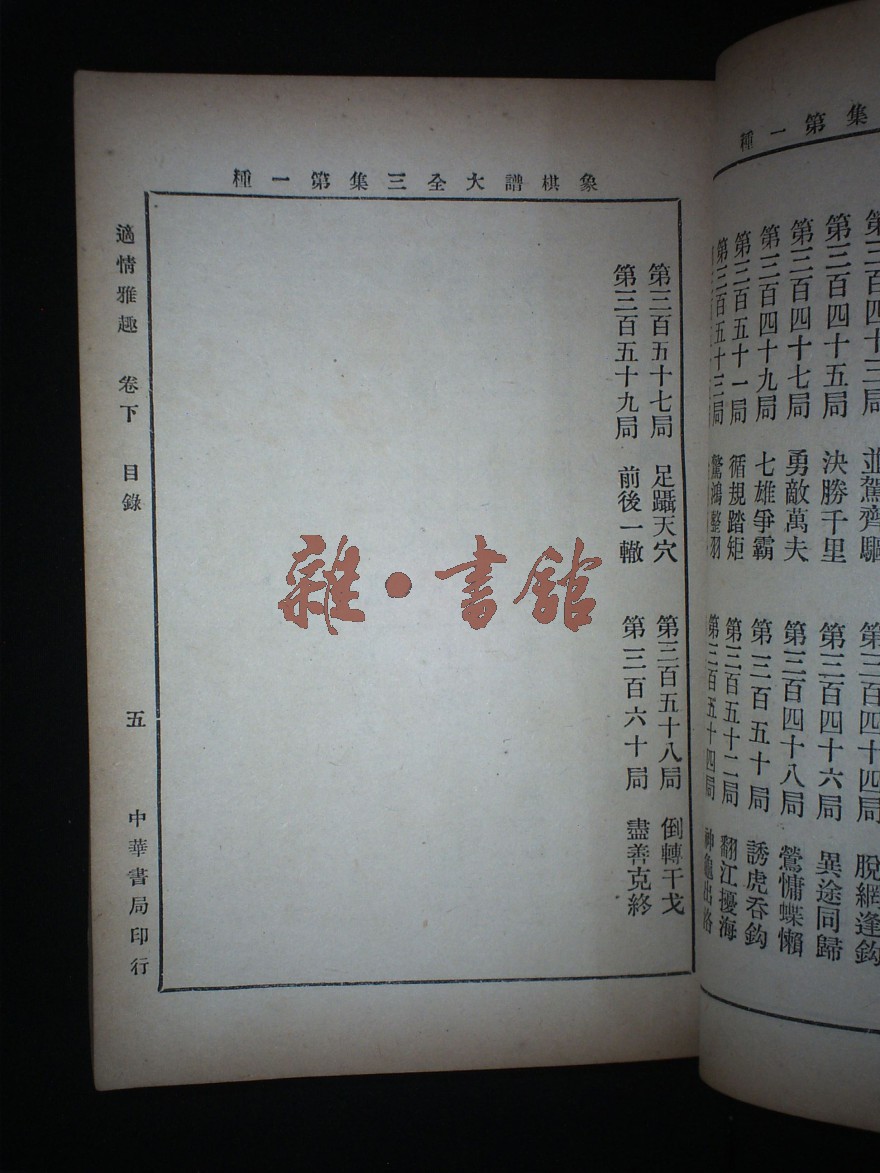 集第一種
第三百四十三局 並駕齊驅 第三百四十四局 脫網逢鈎
第三百四十五局 決勝千里 第三百四十六局 異途同歸
第三百四十七局 勇敵萬夫 第三百四十八局 鶯慵蝶懶
第三百四十九局 七雄爭霸 第三百五十局 誘虎吞鈎
第三百五十一局 循規踏矩 第三百五十二局 翻江擾海
第三百五十三局 驚鴻整羽 第三百五十四局 神龜出洛
象棋譜大全三集第一種
第三百五十七局 足躡天穴 第三百五十八局 倒轉干戈
第三百五十九局 前後一轍 第三百六十局 盡善克終
適情雅趣 卷下 目錄 五 中華書局印行
雜·書館